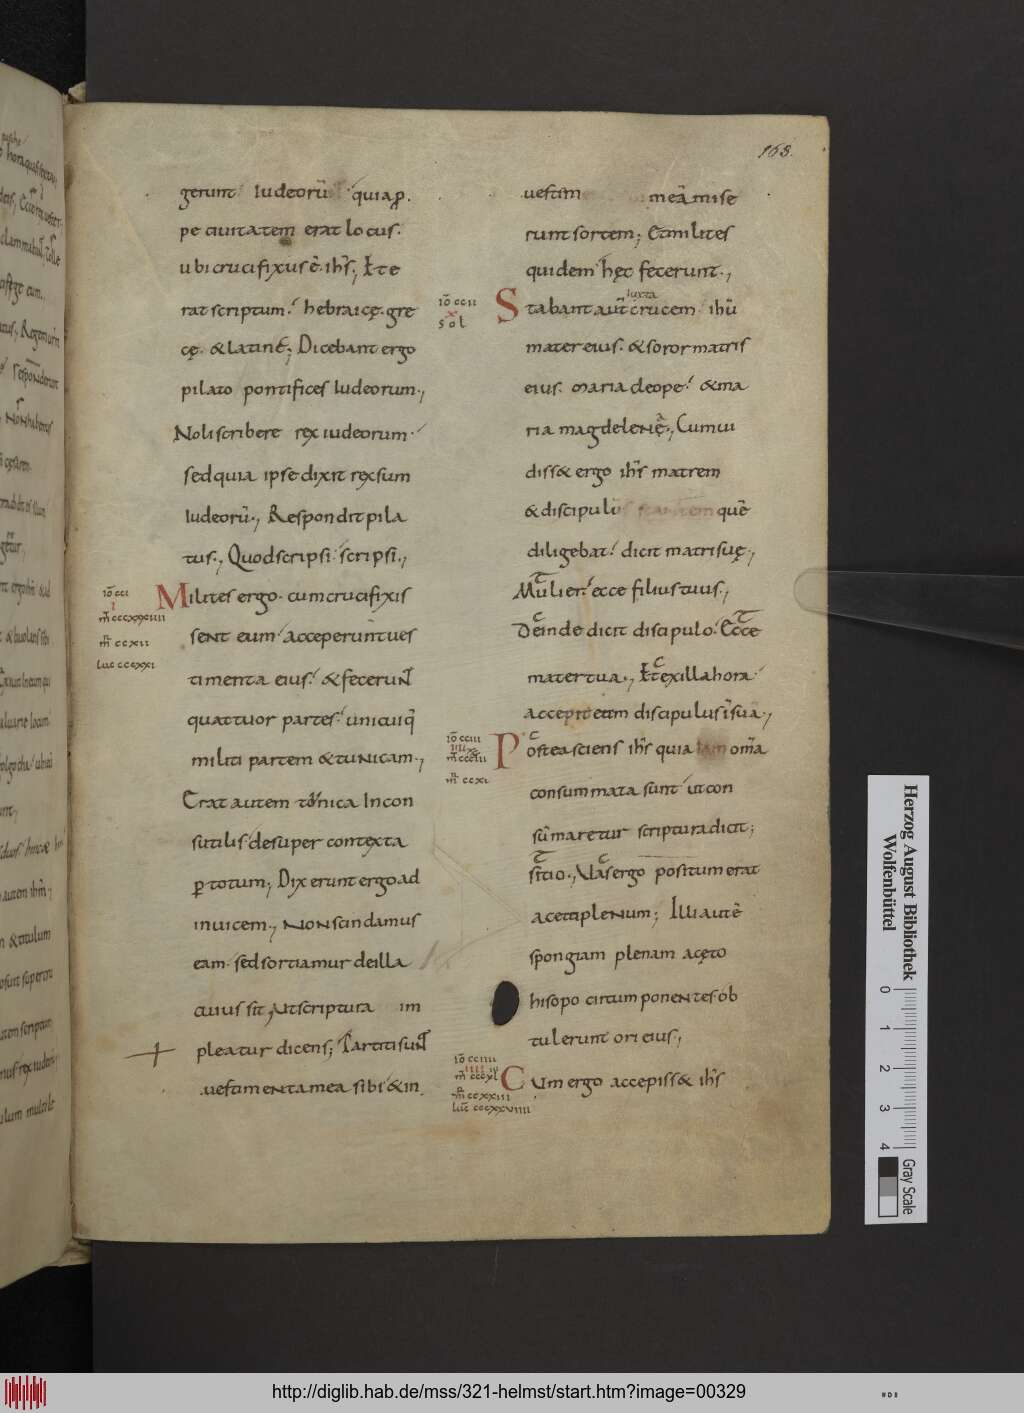 168.
gerunt iudeorū quia ꝓ
pe ciuitatem erat locus.
ubi crucifixus ē ihs; Et e
rat scriptum. hebraicę. gre
cę. & latinę; Dicebant ergo
pilato pontifices iudeorum.,
Noli scribere rex iudeorum
sed quia ipse dixit rex sum
iudeorū., Respondit pila
tus., Quod scripsi scripsi.,
Milites ergo. cum crucifixis
sent eum acceperunt ues
timenta eius. & fecerunt
quattuor partes. unicuiq̄
militi partem & tunicam.,
Erat autem tonica incon
sutilis desuper contexta
ꝑ totum; Dixerunt ergo ad
inuicem., Non scindamus
eam. sed sortiamur de illa
cuius sit, ut scriptura im
pleatur dicens; Partiti sunt
uestimenta mea sibi & in
iō cci
i
m̄ cccxxxiiii
m̄ ccxii
luc cccxxi
uestim meā mise
runt sortem; Et milites
quidem hęc fecerunt.,
iuxta
Stabant aut̄ crucem ihū
mater eius. & soror matris
eius. maria cleope. & ma
ria magdelenę., Cum ui
diss& ergo ihs matrem
& discipulū stantem quē
diligebat. dicit matri suę.,
Mulier. ecce filius tuus.,
Deinde dicit discipulo. Ecce
mater tua., Et ex illa hora
accepit eam discipulus ī sua.,
Postea sciens ihs quia iam om̄a
consummata sunt ut con
sūmaretur scriptura dicit;
sitio., Uas ergo positum erat
aceti plenum; Illi autē
spongiam plenam acęto
hisopo circumponentes. ob
tulerunt ori eius.,
Cum ergo accepiss& ihs
iō ccii
x
sol
iō cciii
iiii
m̄ cccxi
iō cciiii
m̄ ccxxiii
luc cccxxviiii
Herzog August Bibliothek
Wolfenbüttel
0 1 2 3 4
Gray Scale
http://diglib.hab.de/mss/321-helmst/start.htm?image=00329